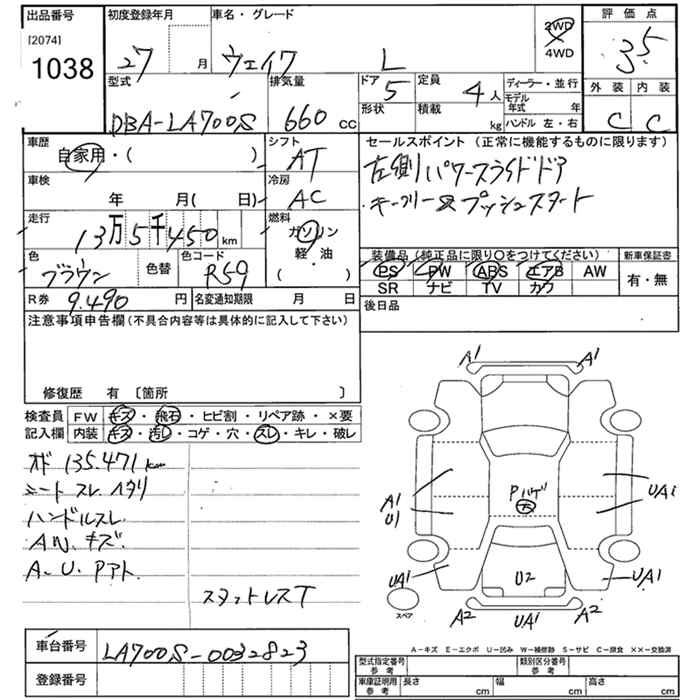 出品番号 初度登録年月 車名・グレード 2WD 4WD 評価点
[2074] 1038 27 月 ウェイク L 3.5
型式 排気量 ドア 5 定員 4人 ディーラー・並行 外装 内装
DBA-LA700S 660 cc 形状 積載 kg モデル年式 年 C C
ハンドル 左・右
車歴 自家用・( ) シフト AT セールスポイント (正常に機能するものに限ります)
左側パワースライドドア
車検 年 月( 日) 冷房 AC キーフリー&プッシュスタート
走行 13万5千450km 燃料 ガソリン 軽・油 ( )
色 ブラウン 色替 色コード R59 装備品(純正品に限り〇をつけてください) 新車保証書
PS・PW・ABS・エアB・AW 有・無
SR ナビ TV カワ
R券 9.490 円 名変通知期限 月 日 後日品
注意事項申告欄(不具合内容等は具体的に記入して下さい)
修復歴 有 〔箇所 〕
検査員 FW キズ・飛石・ヒビ割・リペア跡・×要
記入欄 内装 キズ・汚レ・コゲ・穴・スレ・キレ・破レ
オド 135.471km
シート スレ ヘタリ
ハンドルスレ
AW.キズ.
A.U.Pアト.
スタットレスT
A1 A1
Pバゲ 大
A1 U1 UA1
UA1 U2 UA1
スペア A2 UA1 A2
車台番号 LA700S-0032823
登録番号
A-キズ E-エクボ U-凹み W-補修跡 S-サビ C-腐食 ××-交換済
型式指定番号 参考 類別区分番号 参考
車庫証明用 参考 長さ cm 幅 cm 高さ cm